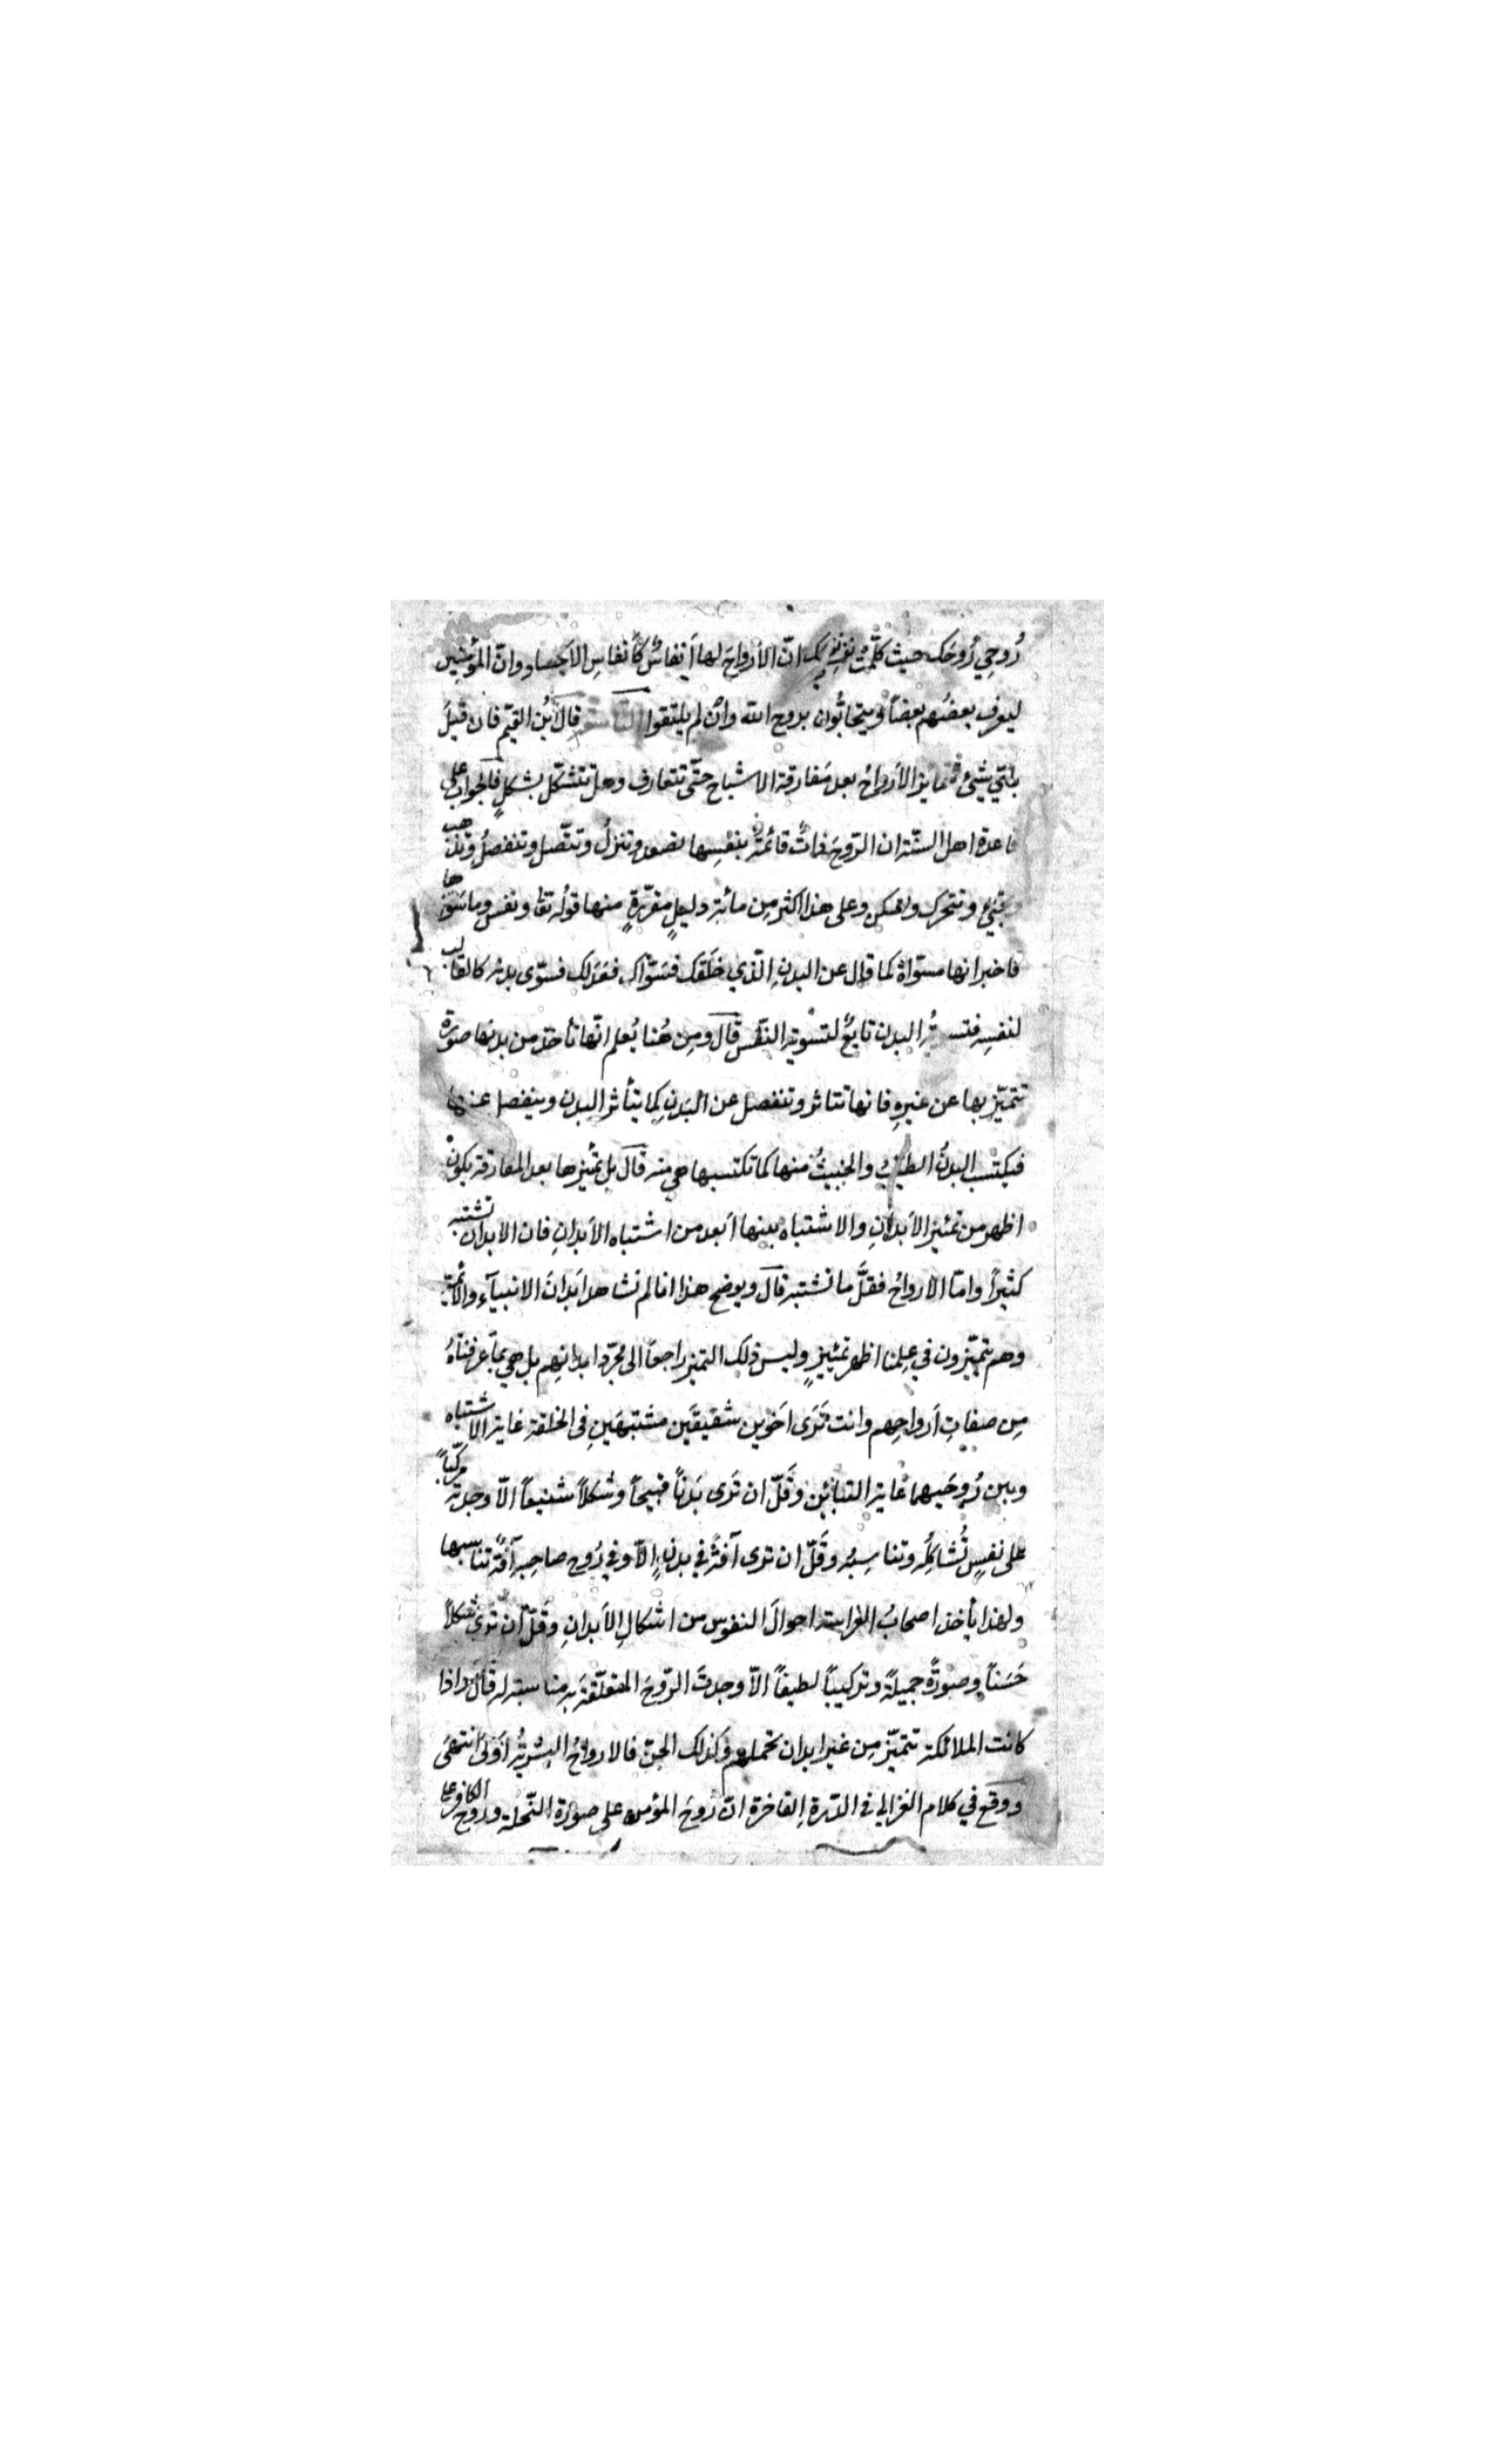 رُوحِي رُوحَك حيث كلَّمَتْ نفسِي نفسك انّ الأرواحَ لها أنفاسٌ كأنفاسِ الأجساد وانّ المؤمنِين
ليعرف بعضُهم بعضاً ويتحابُّون بروح الله وان لم يلتقوا قالَ ابنُ القيّم فان قيلَ
بأيّ شيئ تتمايز الأرواحُ بعد مفارقة الاشباح حتّى تتعارف وهل تتشكّل بشكلٍ فالجواب على
قاعدة اهل السنّة ان الرّوحَ ذاتٌ قائمةٌ بنفسِها تصعد وتنزلُ وتتّصل وتنفصلُ وتذهب
وتجيئ وتتحرك وتسكن وعلى هذا اكثر مِن مائة دليلٍ مقرّرةٍ منها قوله تعا ونفس وما سَوّٰها
فاخبر انها مسوّاة كما قال عن البدنِ الّذي خلَقك فسَوّاك فعَدَلك فسوّى بدنه كالقالب
لنفسِه فتسوية البدن تابعٌ لتسوية النّفس قال ومِن هُنا يُعلم انّها تأخذ من بدنها صورة
تتميّز بها عن غيرهِ فانها تتاثر وتنفصل عن البَدنِ كما يتأثر البدن وينفصل عنها
فيكتسب البدنُ الطيّبُ والخبيثُ منها كما تكتسبها هي منه قال بل تميّزها بعد المفارقة يكونُ
اظهر من تميّز الأبدانِ والاشتباه بينها أبعد من اشتباه الأبدانِ فان الابدان تشتبه
كثيراً وامّا الارواحُ فقلَّ ما تشتبه قال ويوضح هذا انا لم نشاهد اَبدانَ الانبيآء والأئمّة
وهم يتميّزون في عِلمنا اظهر تميّيزٍ وليس ذلك التميّز راجعاً الى مجرّد ابدانِهم بل هي بما عرفناهُ
مِن صفاتِ اَرواحِهم وانت تَرَى اخَوْين شقيقَين مشتبهَينِ في الخلقة غاية الاشتباه
وبين رُوحَيهما غاية التباين وقَلّ ان تَرَى بَدناً قبيحاً وشكلاً شنيعاً الاّ وجدته مركّباً
على نفسٍ تُشاكِلُه وتناسِبُه وقَلّ ان ترى آفةً في بدنٍ اِلاّ وفي رُوح صاحِبه آفةٌ تناسبها
ولهذا يأخذ اصحابُ الفراسة احوالَ النفوس من اشكالِ الأبدانِ وقَلّ ان تَرَى شكلاً
حَسَناً وصورةً جميلةً وتركيباً لطيفاً الاّ وجدتَ الرّوحَ المتعلّقةَ به مناسبة له قال واذا
كانت الملائكة تتميّز مِن غير ابدان تحملهم وكذلك الجنّ فالارواحُ البشريّةُ اَوْلَى انتهى
ووقع في كلام الغزالي في الدّرة الفاخرة انّ رُوحَ المؤمن على صورة النّحلة وروح الكافر على